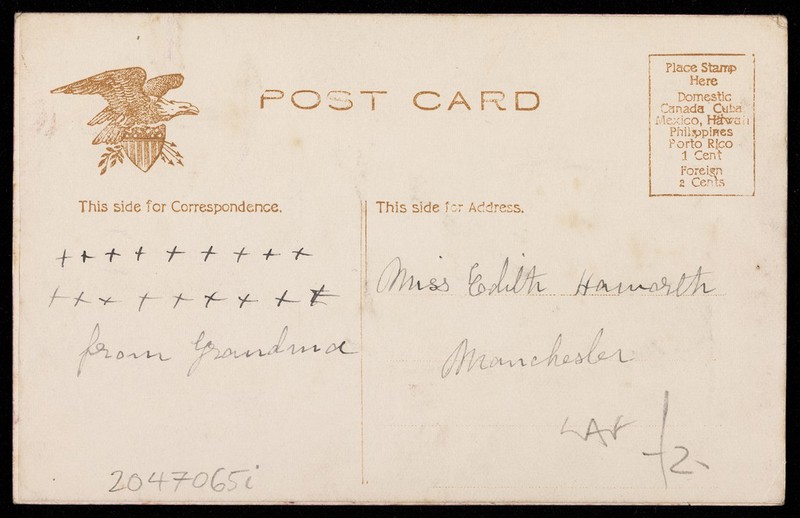 POST CARD
Place Stamp
Here
Domestic
Canada Cuba
Mexico, Hawaii
Philippines
Porto Rico
1 Cent
Foreign
2 Cents
This side for Correspondence.
This side for Address.
+ + + + + + + + +
+ + + + + + + + +
from Grandma
Miss Edith Haworth
Manchester
2047065i